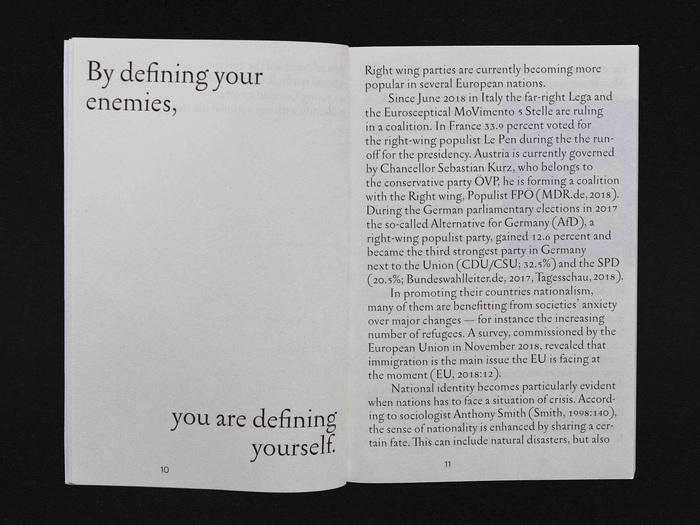 By defining your
enemies,
you are defining
yourself.
10
Right wing parties are currently becoming more
popular in several European nations.
Since June 2018 in Italy the far-right Lega and
the Eurosceptical MoVimento 5 Stelle are ruling
in a coalition. In France 33.9 percent voted for
the right-wing populist Le Pen during the the run-
off for the presidency. Austria is currently governed
by Chancellor Sebastian Kurz, who belongs to
the conservative party ÖVP, he is forming a coalition
with the Right wing, Populist FPÖ (MDR.de, 2018).
During the German parliamentary elections in 2017
the so-called Alternative for Germany (AfD), a
right-wing populist party, gained 12.6 percent and
became the third strongest party in Germany
next to the Union (CDU/CSU; 32.5%) and the SPD
(20.5%; Bundeswahlleiter.de, 2017, Tagesschau, 2018).
In promoting their countries nationalism,
many of them are benefitting from societies' anxiety
over major changes — for instance the increasing
number of refugees. A survey, commissioned by the
European Union in November 2018, revealed that
immigration is the main issue the EU is facing at
the moment (EU, 2018:12).
National identity becomes particularly evident
when nations has to face a situation of crisis. Accord-
ing to sociologist Anthony Smith (Smith, 1998:140),
the sense of nationality is enhanced by sharing a cer-
tain fate. This can include natural disasters, but also
11